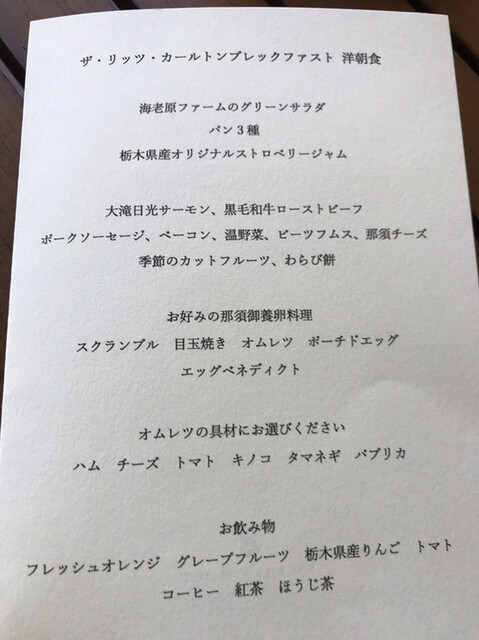 ザ・リッツ・カールトンブレックファスト 洋朝食
海老原ファームのグリーンサラダ
パン３種
栃木県産オリジナルストロベリージャム
大滝日光サーモン、黒毛和牛ローストビーフ
ポークソーセージ、ベーコン、温野菜、ビーツフムス、那須チーズ
季節のカットフルーツ、わらび餅
お好みの那須御養卵料理
スクランブル　目玉焼き　オムレツ　ポーチドエッグ
エッグベネディクト
オムレツの具材にお選びください
ハム　チーズ　トマト　キノコ　タマネギ　パプリカ
お飲み物
フレッシュオレンジ　グレープフルーツ　栃木県産りんご　トマト
コーヒー　紅茶　ほうじ茶